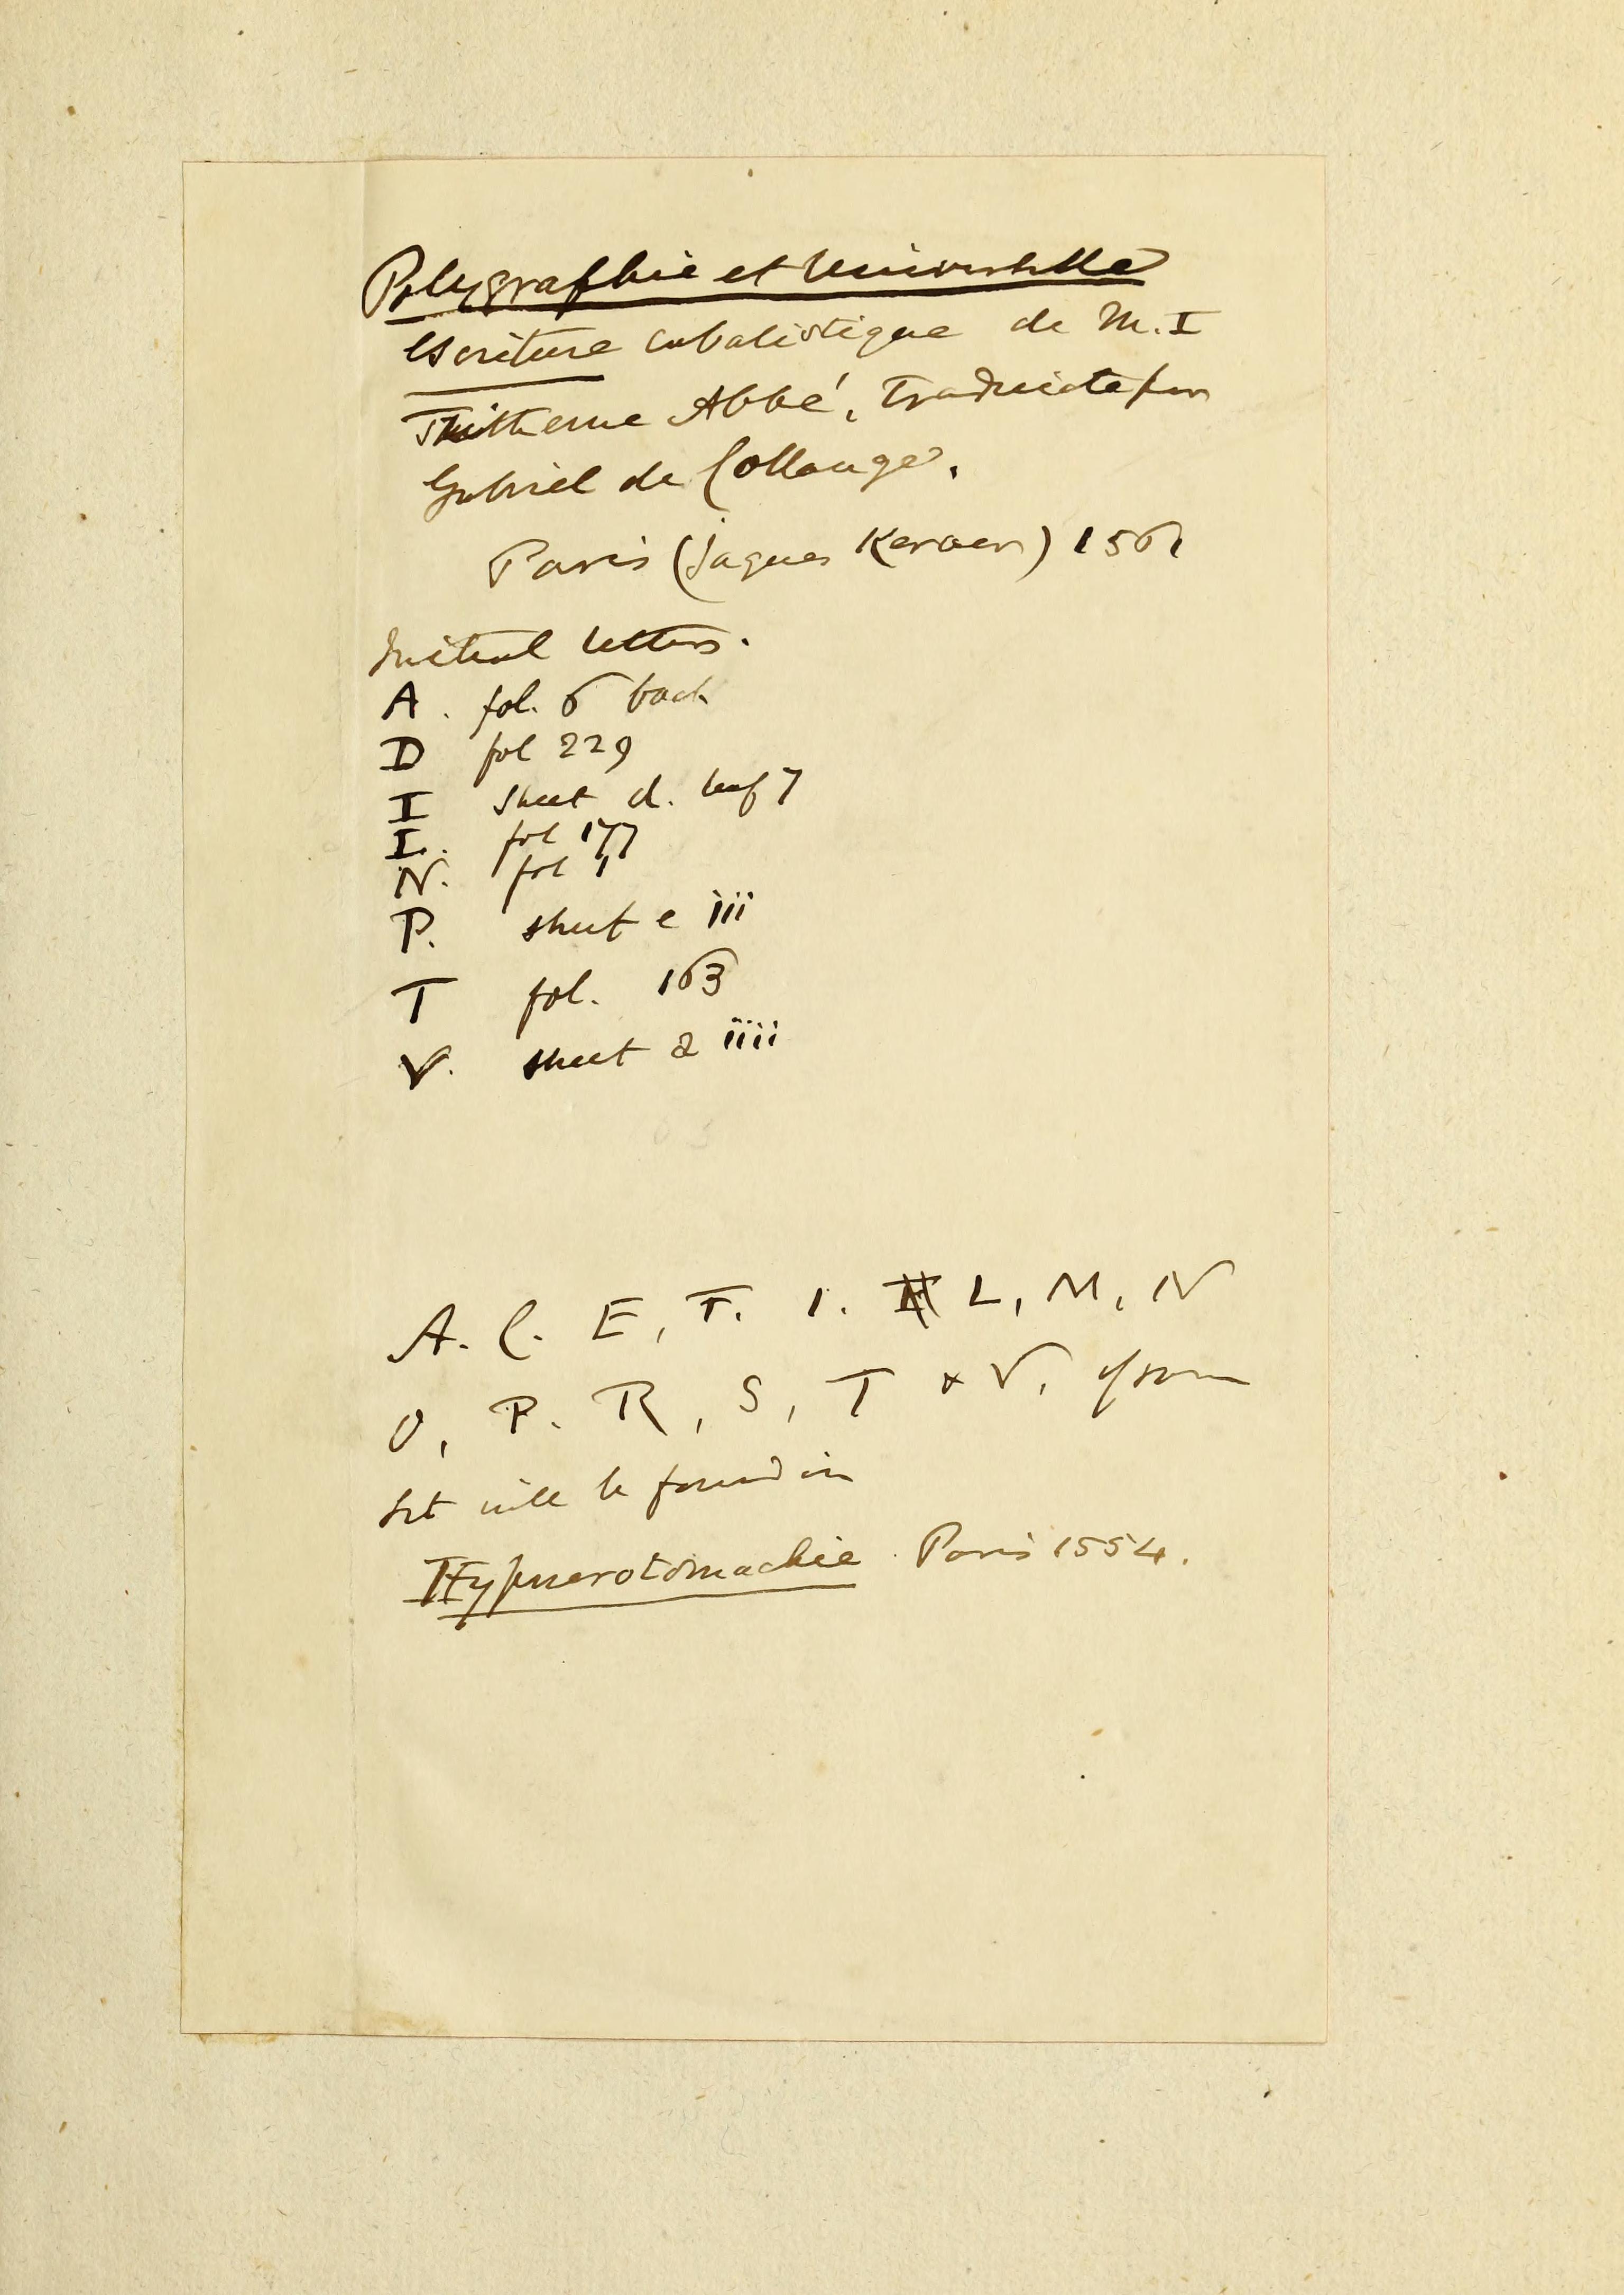 Polygraphie et Universelle
escriture cabalistique de M. I
Trittheme Abbé, Traduicte par
Gabriel de Collange.
Paris (Jaques Kerver) 1561
Initial letters.
A. fol. 6 back
D fol 229
I sheet d. leaf 7
I. fol 177
N. fol 1
P. sheet e iii
T fol. 163
V. sheet a iiii
A. C. E, T. I. L, M, N
O, P. R, S, T & V. of same
set will be found in
Hypnerotomachie. Paris 1554.